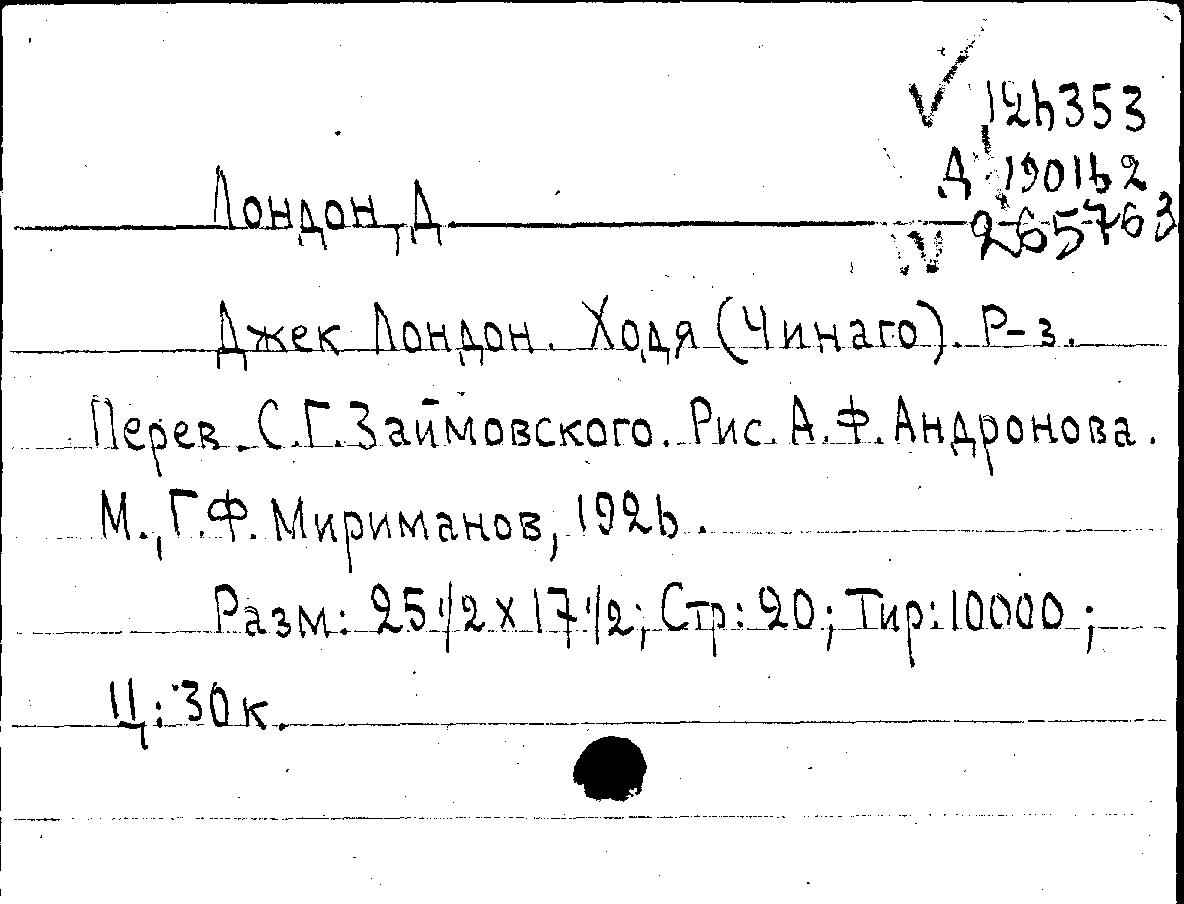 126353
Д 190162
Лондон, Д.
265763
Джек Лондон. Ходя (Чинаго). Р-з.
Перев. С.Г.Займовского. Рис. А.Ф.Андронова.
М., Г.Ф. Мириманов, 1926.
Разм: 25 1/2 x 17 1/2; Стр: 20; Тир: 10000;
Ц: 30 к.